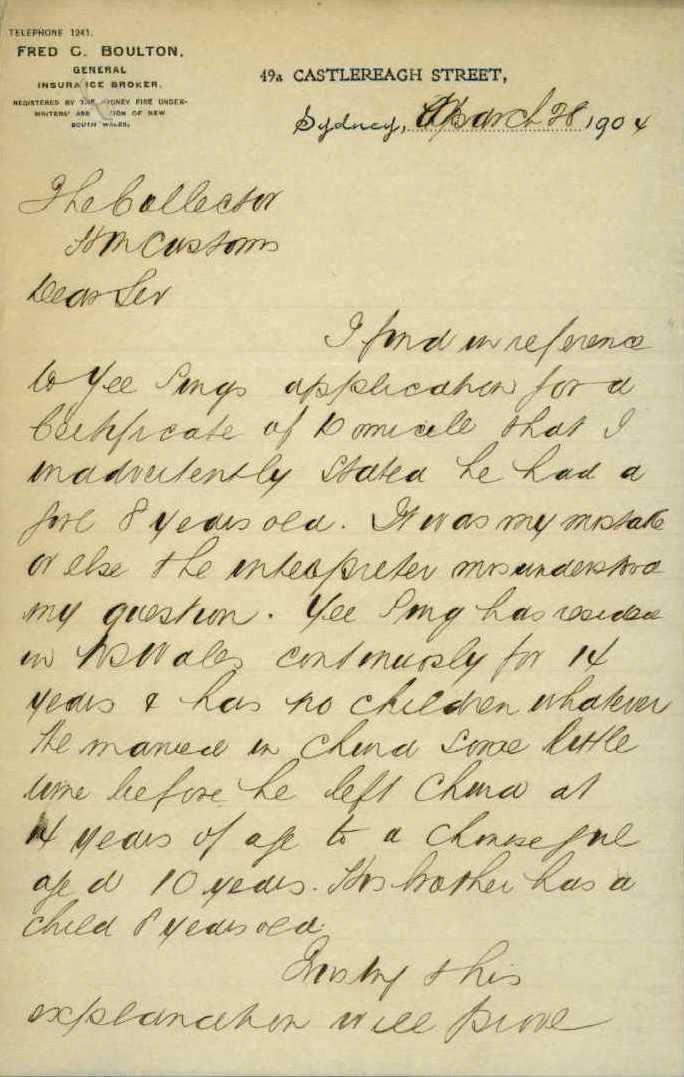 TELEPHONE 1241.
FRED C. BOULTON,
GENERAL
INSURANCE BROKER.
REGISTERED BY THE SYDNEY FIRE UNDER-
WRITERS' ASS TION OF NEW
SOUTH WALES,
49a CASTLEREAGH STREET,
Sydney, March 28 1904
The Collector
H M Customs
Dear Sir
I find in reference
to Yee Sings application for a
Certificate of Domicile that I
inadvertently stated he had a
girl 8 years old. It was my mistake
or else the interpreter misunderstood
my question. Yee Sing has resided
in NSWales continuously for 14
years & has no children whatever
He married in China some little
time before he left China at
14 years of age to a Chinese girl
aged 10 years. His brother has a
child 8 years old.
Trusting this
explanation will prove